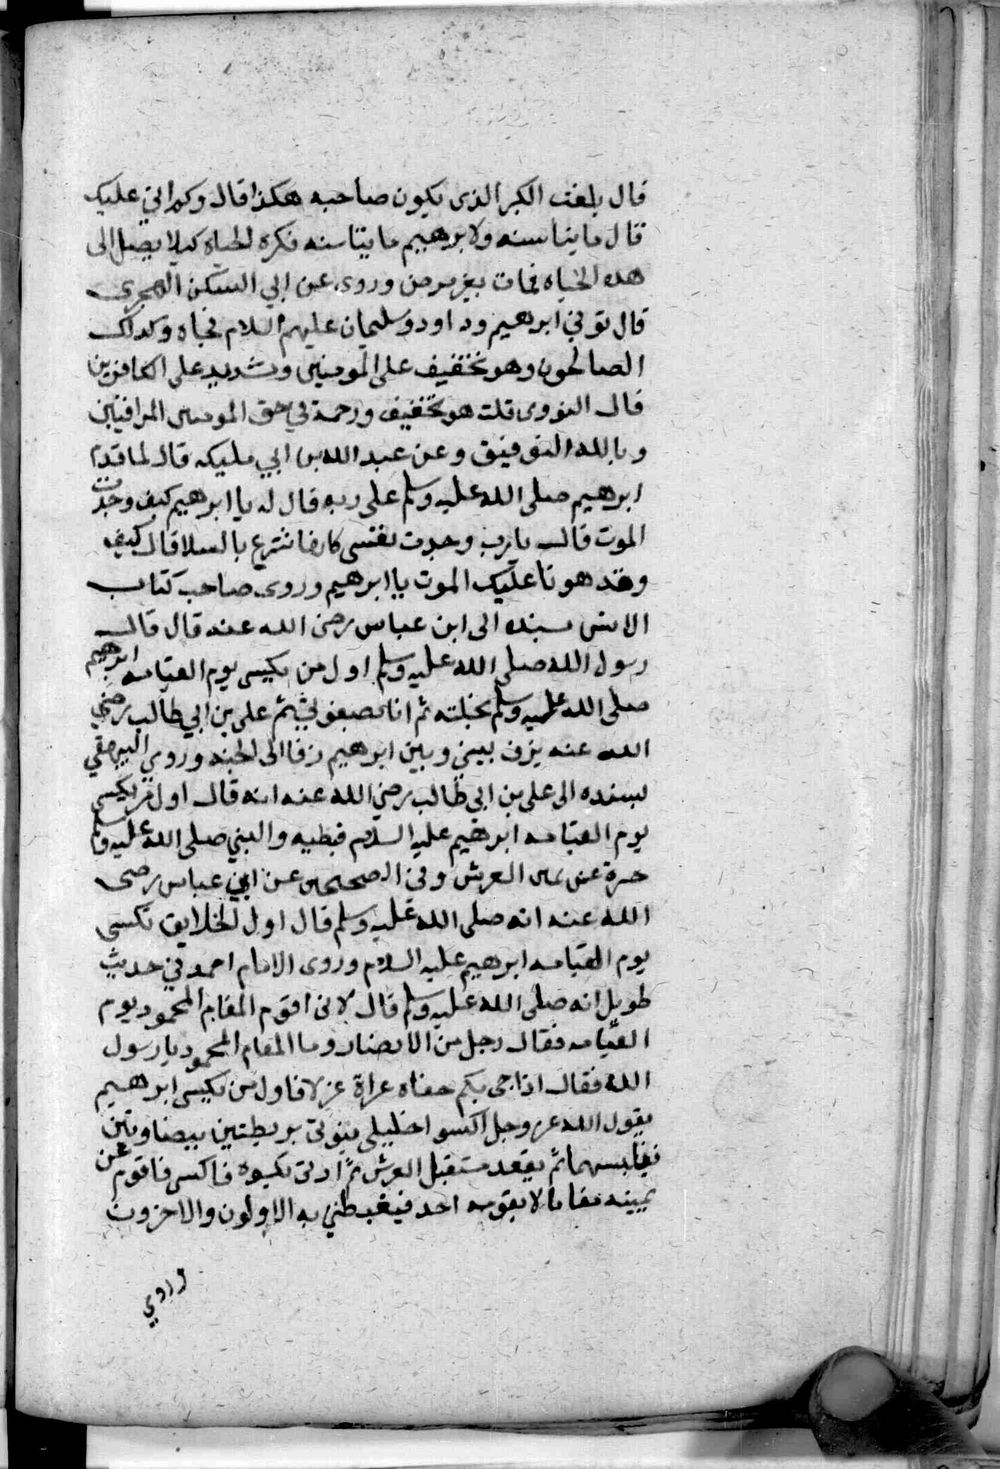 قال بلغت الكبر الذى يكون صاحبه هكذا قال وكم اتي عليك
قال مايتا سنه ولابرهيم مايتا سنه فكره الحياه كيلا يصل الى
هذه الحياه فمات بغير مرض وروى عن ابي السكن الهجرى
قال توفي ابرهيم وداود وسليمان عليهم السلام فجاه وكذلك
الصالحون وهو تخفيف على المومنين وتشديد على الكافرين
قال النووى قلت هو تخفيف ورحمة في حق المومنين المراقبين
وبالله التوفيق وعن عبد الله بن ابي مليكه قال لما قدم
ابرهيم صلى الله عليه وسلم على ربه قال له يا ابرهيم كيف وجدت
الموت قال يارب وجدت نفسى كانها تنزع بالسلا قال كيف
وقد هونا عليك الموت يا ابرهيم وروى صاحب كتاب
الانس بسنده الى ابن عباس رضى الله عنه قال قال
رسول الله صلى الله عليه وسلم اول من يكسى يوم القيامه ابرهيم
صلى الله عليه وسلم بخلته ثم انا بصفوتي ثم على بن ابي طالب رضي
الله عنه يزف بيني وبين ابرهيم زفا الى الجنه وروى البيهقي
بسنده الى على بن ابى طالب رضي الله عنه انه قال اول من يكسى
يوم القيامه ابرهيم عليه السلام قبطيه والنبي صلى الله عليه وسلم
حبرة عن يمين العرش وفى الصحيحين عن ابن عباس رضى
الله عنه انه صلى الله عليه وسلم قال اول الخلايق تكسى
يوم القيامه ابرهيم عليه السلام وروى الامام احمد في حديث
طويل انه صلى الله عليه وسلم قال لانى اقوم المقام المحمود يوم
القيامه فقال رجل من الانصار وما المقام المحمود يا رسول
الله فقال اذا جى بكم حفاه عراة غرلا فاول من يكسى ابرهيم
يقول الله عز وجل اكسوا خليلى فيوتى بريطتين بيضاوتين
فيلبسهما ثم يقعد مستقبل العرش ثم اوتى بكسوه فاكسى فاقوم عن
يمينه مقاما لا يقومه احد فيغبطني به الاولون والاخرون
وروي